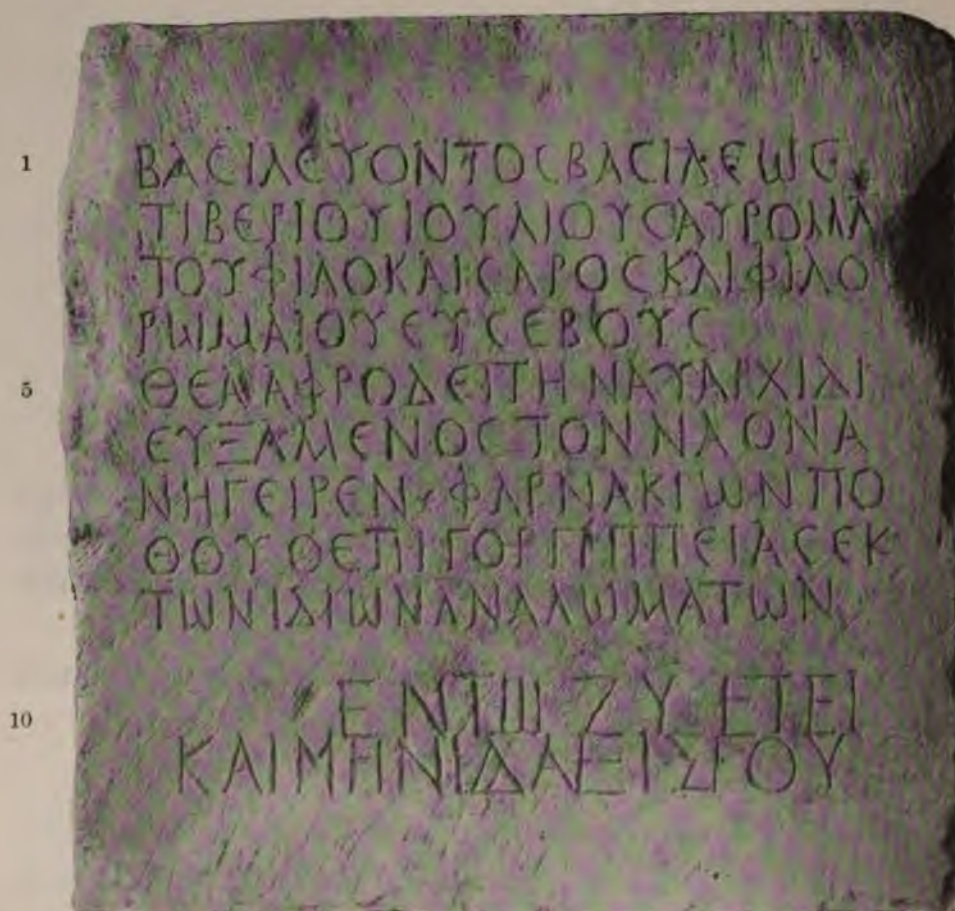 1 ΒΑϹΙΛΕΥΟΝΤΟϹΒΑϹΙΛΕΩϹ
ΤΙΒΕΡΙΟΥΙΟΥΛΙΟΥϹΑΥΡΟΜΑ
ΤΟΥΦΙΛΟΚΑΙϹΑΡΟϹΚΑΙΦΙΛΟ
ΡΩΜΑΙΟΥΕΥϹΕΒΟΥϹ
5 ΘΕΑΑΦΡΟΔΕΙΤΗΝΑΥΑΡΧΙΔΙ
ΕΥΞΑΜΕΝΟϹΤΟΝΝΑΟΝΑ
ΝΗΓΕΙΡΕΝΦΑΡΝΑΚΙΩΝΠΟ
ΘΟΥΟΕΠΙΓΟΡΓΙΠΠΕΙΑϹΕΚ
ΤΩΝΙΔΙΩΝΑΝΑΛΩΜΑΤΩΝ
10 ΕΝΤΩΙ ΖΥ ΕΤΕΙ
ΚΑΙΜΗΝΙΔΑΕΙΣΙΟΥ